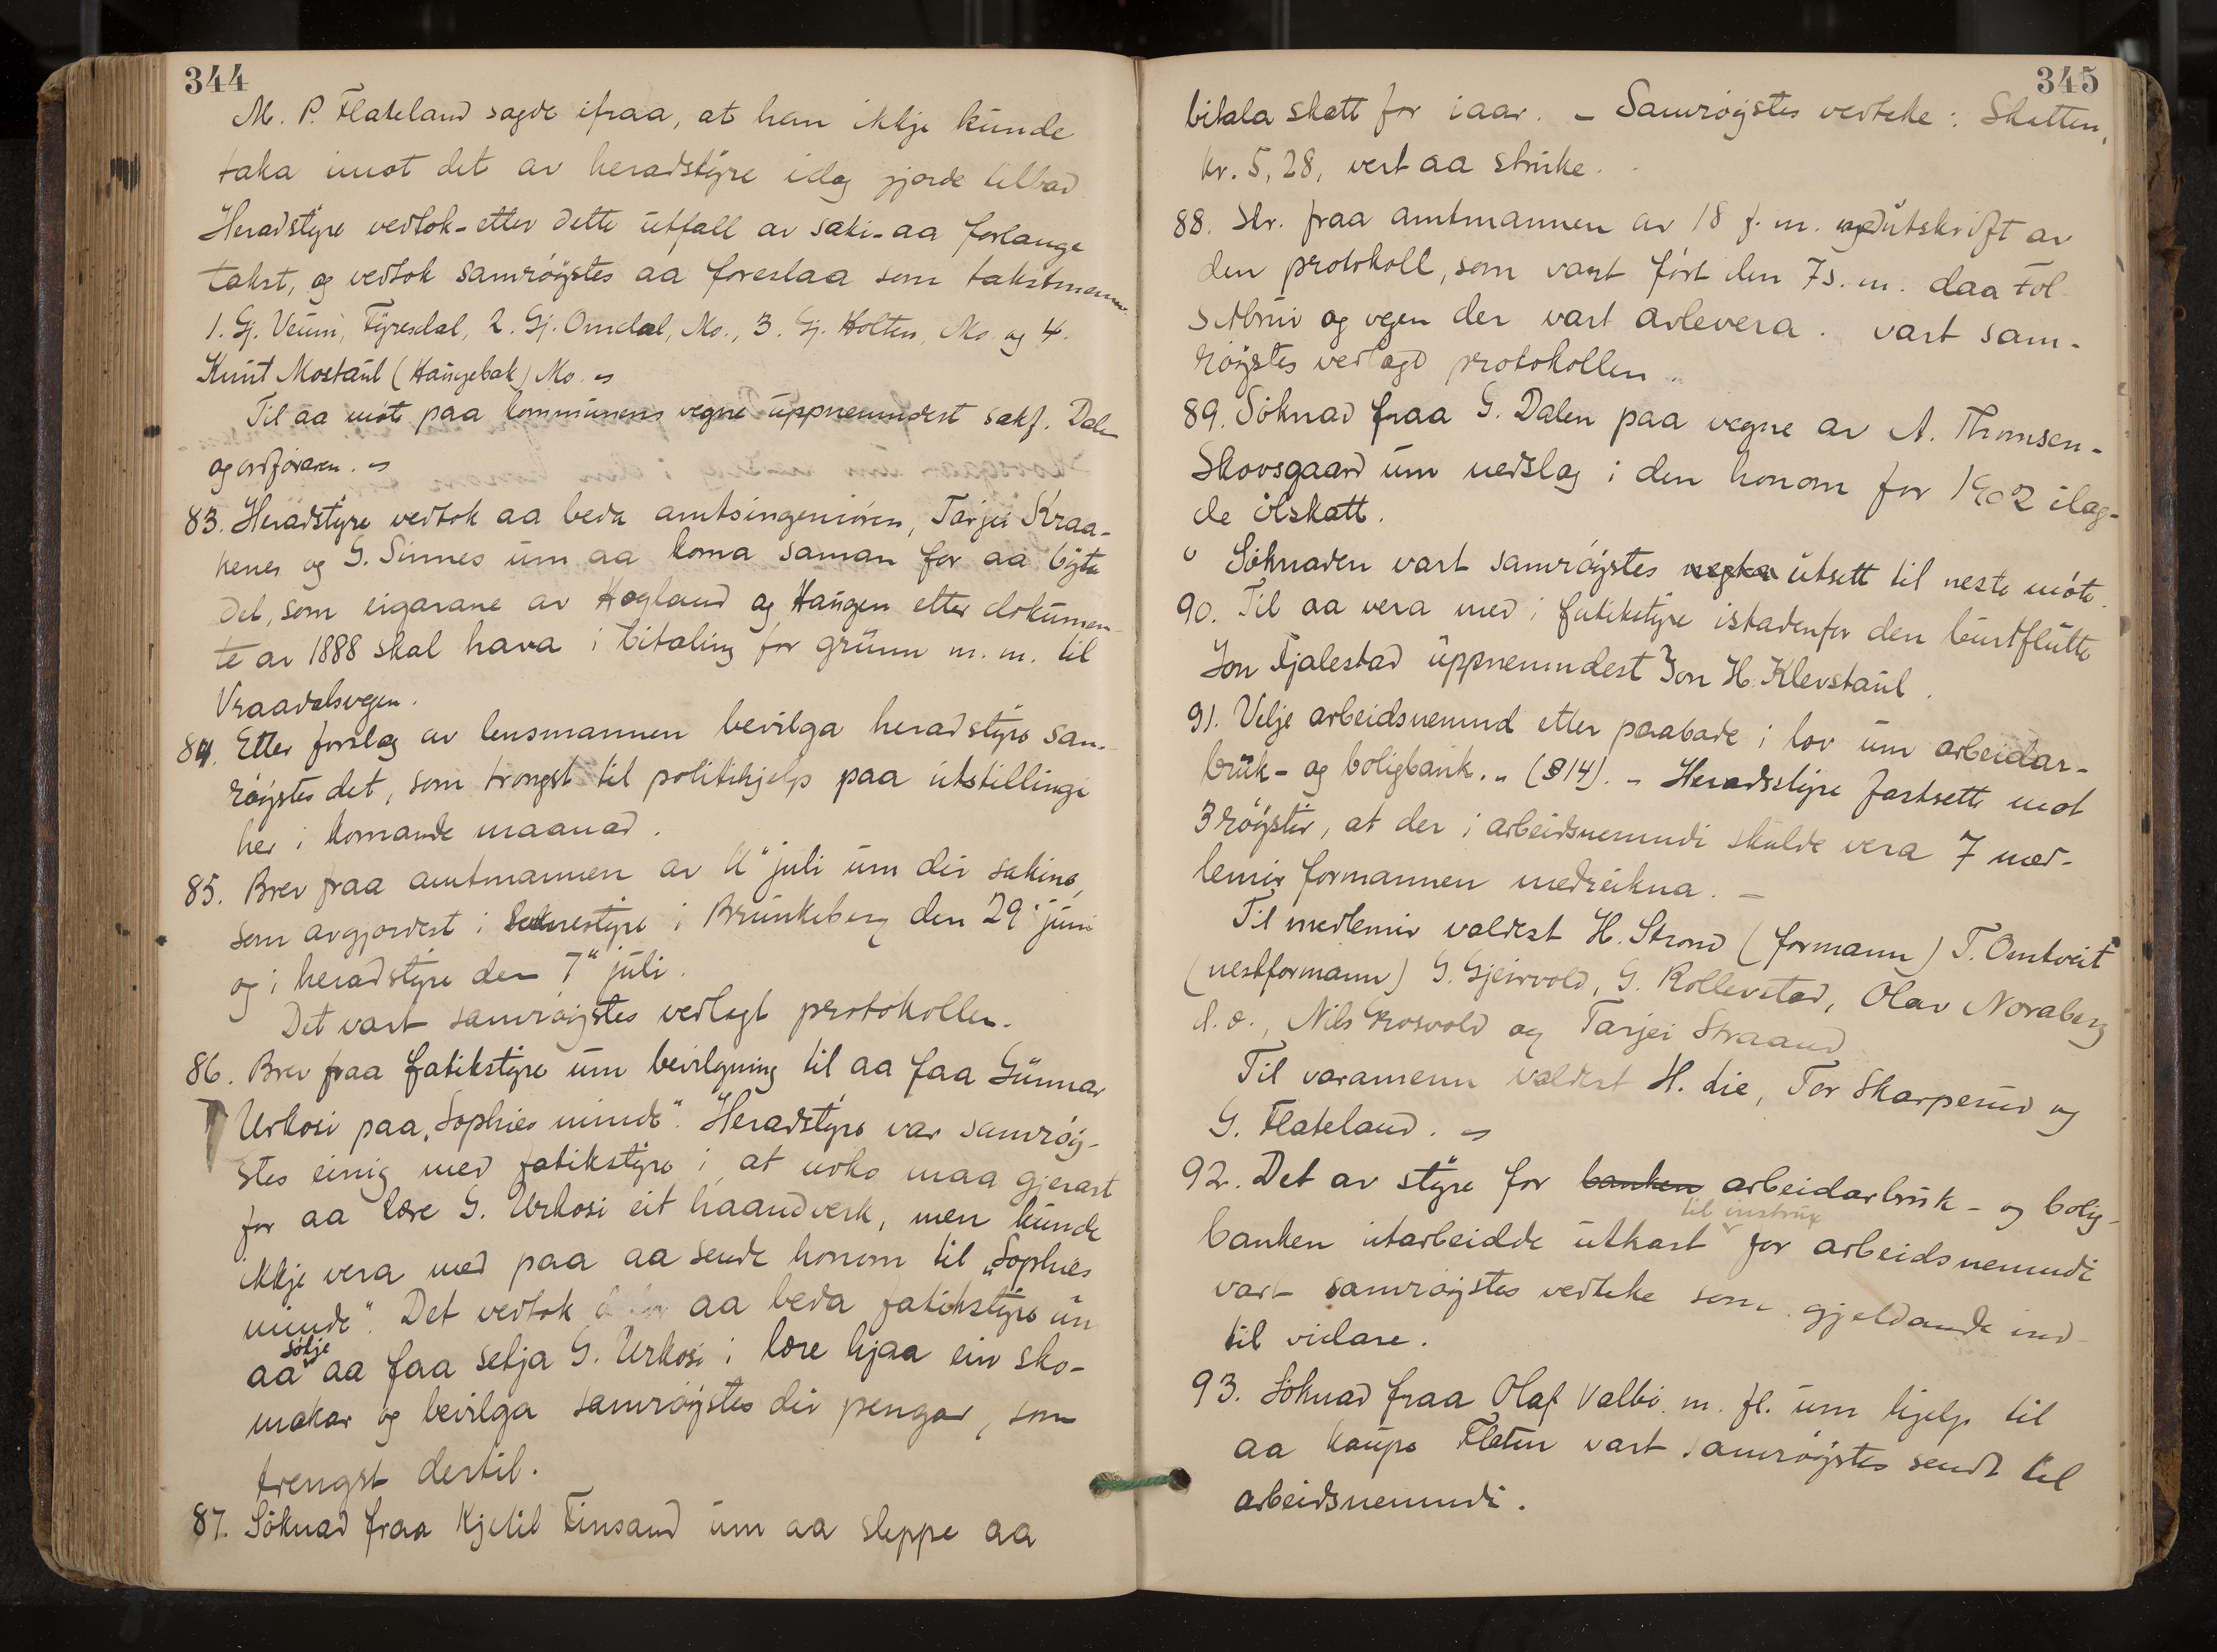 344
M. P. Flateland sagde ifraa, at han ikkje kunde
taka imot det av heradstyre idag gjorde tilbod
Heradstyre vedtok - etter dette utfall av saki - aa forlange
takst, og vedtok samröystes aa foreslaa som takstmenn
1. Gj. Veum, Fyresdal, 2. Gj. Omdal, Mo., 3. Gj. Holten, Mo. og 4.
Knut Mostaul (Haugebak) Mo.
Til aa möte paa kommunens vegne uppnemndest sakf. Dalen
og ordföraren.
83. Heradstyre vedtok aa beda amtsingeniören, Tarjei Kraa-
kenes og G. Sinnes um aa koma saman for aa byte
det, som eigarane av Høgland og Haugen etter dokumen-
te av 1888 skal hava i bitaling for grunn m. m. til
Vraadalsvegen.
84. Etter forslag av lensmannen bevilga heradstyre sam-
röystes det, som trongst til politihjelp paa utstillingi
her i komande maanad.
85. Brev fraa amtmannen av 11" juli um dei sakine,
som avgjordest i soknestyre i Brunkeberg den 29" juni
og i heradstyre den 7" juli.
Det vart samröystes vedlagt protokollen.
86. Brev fraa fatikstyre um bevilgning til aa faa Gunnar
Urkosi paa „Sophies minde". Heradstyre var samröy-
stes einig med fatikstyre i at noko maa gjerast
for aa lære G. Urkosi eit haandverk, men kunde
ikkje vera med paa aa sende honom til „Sophies
minde". Det vedtok aa beda fatikstyre um
aa sökje aa faa setja G. Urkosi i lære hjaa ein sko-
makar og bevilga samröystes dei pengar, som
trengst dertil.
87. Söknad fraa Kjetil Finsand um aa sleppe aa
345
bitala skatt for iaar. - Samröystes vedteke: Skatten,
kr. 5,28, vert aa stryke.
88. Skr. fraa amtmannen av 18 f. m. med utskrift av
den protokoll, som vart fört den 7 s. m. daa
og vegen der vart avlevera. vart sam-
röystes vedlagd protokollen.
89. Söknad fraa G. Dalen paa vegne av A. Thomsen-
Skovsgaard um nedslag i den honom for 1902 ilag-
de ölskatt.
Söknaden vart samröystes utsett til neste möte.
90. Til aa vera med i fatikstyre istadenfor den burtflutte
Jon Fjalestad uppnemndest Jon H. Klevstaul.
91. Velje arbeidsnemnd etter paabode i lov um arbeidar-
bruk- og boligbank. (§14). - Heradsstyre fastsette mot
3 röyster, at der i arbeidsnemndi skulde vera 7 med-
lemir formannen medreikna. -
Til medlemir valdest H. Strond (formann) T. Omtveit
(nestformann) G. Gjeirvold, G. Rollevstad, Olav Noraberg
d. e., Nils Grosvold og Tarjei Straand
Til varamenn valdest H. Lie, Tor Skarperud og
G. Flateland.
92. Det av styre for banken arbeidarbruk- og bolig-
banken utarbeidde utkast til instrux for arbeidsnemndi
vart samröystes vedteke som gjeldande ind-
til vidare.
93. Söknad fraa Olaf Valbö m. fl. um hjelp til
aa kaupe Flaten vart samröystes sendt til
arbeidsnemndi.